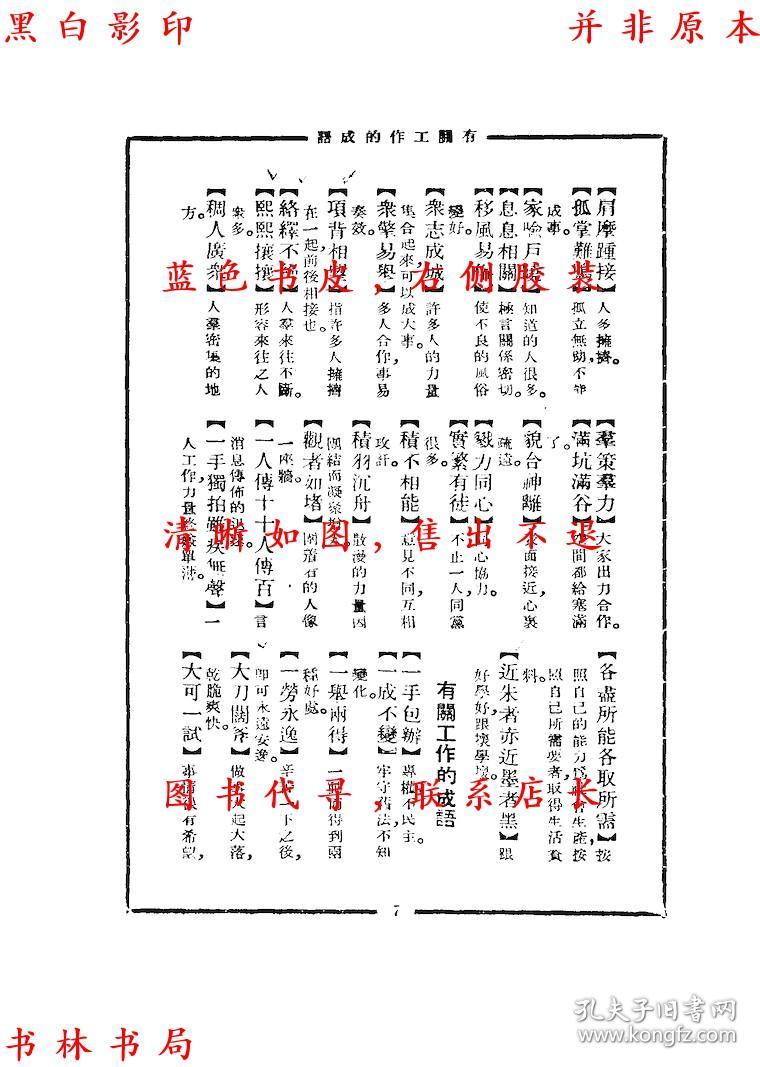 黑白影印
并非原本
有關工作的成語
【肩摩踵接】人多擁擠。
【孤掌難鳴】孤立無助，不能
成事。
【家喻戶曉】知道的人很多。
【息息相關】極言關係密切。
【移風易俗】使不良的風俗
變好。
【衆志成城】許多人的力量
集合起來可以成大事。
【衆擎易舉】多人合作，事易
奏效。
【項背相望】指許多人擁擠
在一起，前後相接也。
【絡繹不絕】人羣來往不斷。
【熙熙攘攘】形容來往之人
衆多。
【稠人廣衆】人羣密集的地
方。
【羣策羣力】大家出力合作。
【滿坑滿谷】空間都給塞滿
了。
【貌合神離】表面接近，心裏
疏遠。
【戮力同心】同心協力。
【實繁有徒】不止一人，同黨
很多。
【積不相能】意見不同，互相
攻訐。
【積羽沉舟】散漫的力量因
團結而凝聚
【觀者如堵】圍着看的人像
一座牆。
【一人傳十十人傳百】言
消息傳佈的迅速。
【一手獨拍雖疾無聲】一
人工作，力量終嫌單薄。
【各盡所能各取所需】按
照自己的能力爲社會生產，按
照自己所需要者取得生活資
料。
【近朱者赤近墨者黑】跟
好學好，跟壞學壞。
有關工作的成語
【一手包辦】專權不民主。
【一成不變】牢守舊法不知
變化。
【一舉兩得】一事而得到兩
種好處。
【一勞永逸】辛苦一下之後，
即可永遠安逸。
【大刀闊斧】做事大起大落，
乾脆爽快。
【大可一試】事情很有希望，
7
蓝色书皮，右侧胶装
清晰如图，售出不退
图书代寻，联系店长
书林书局
孔夫子旧书网
www.kongfz.com